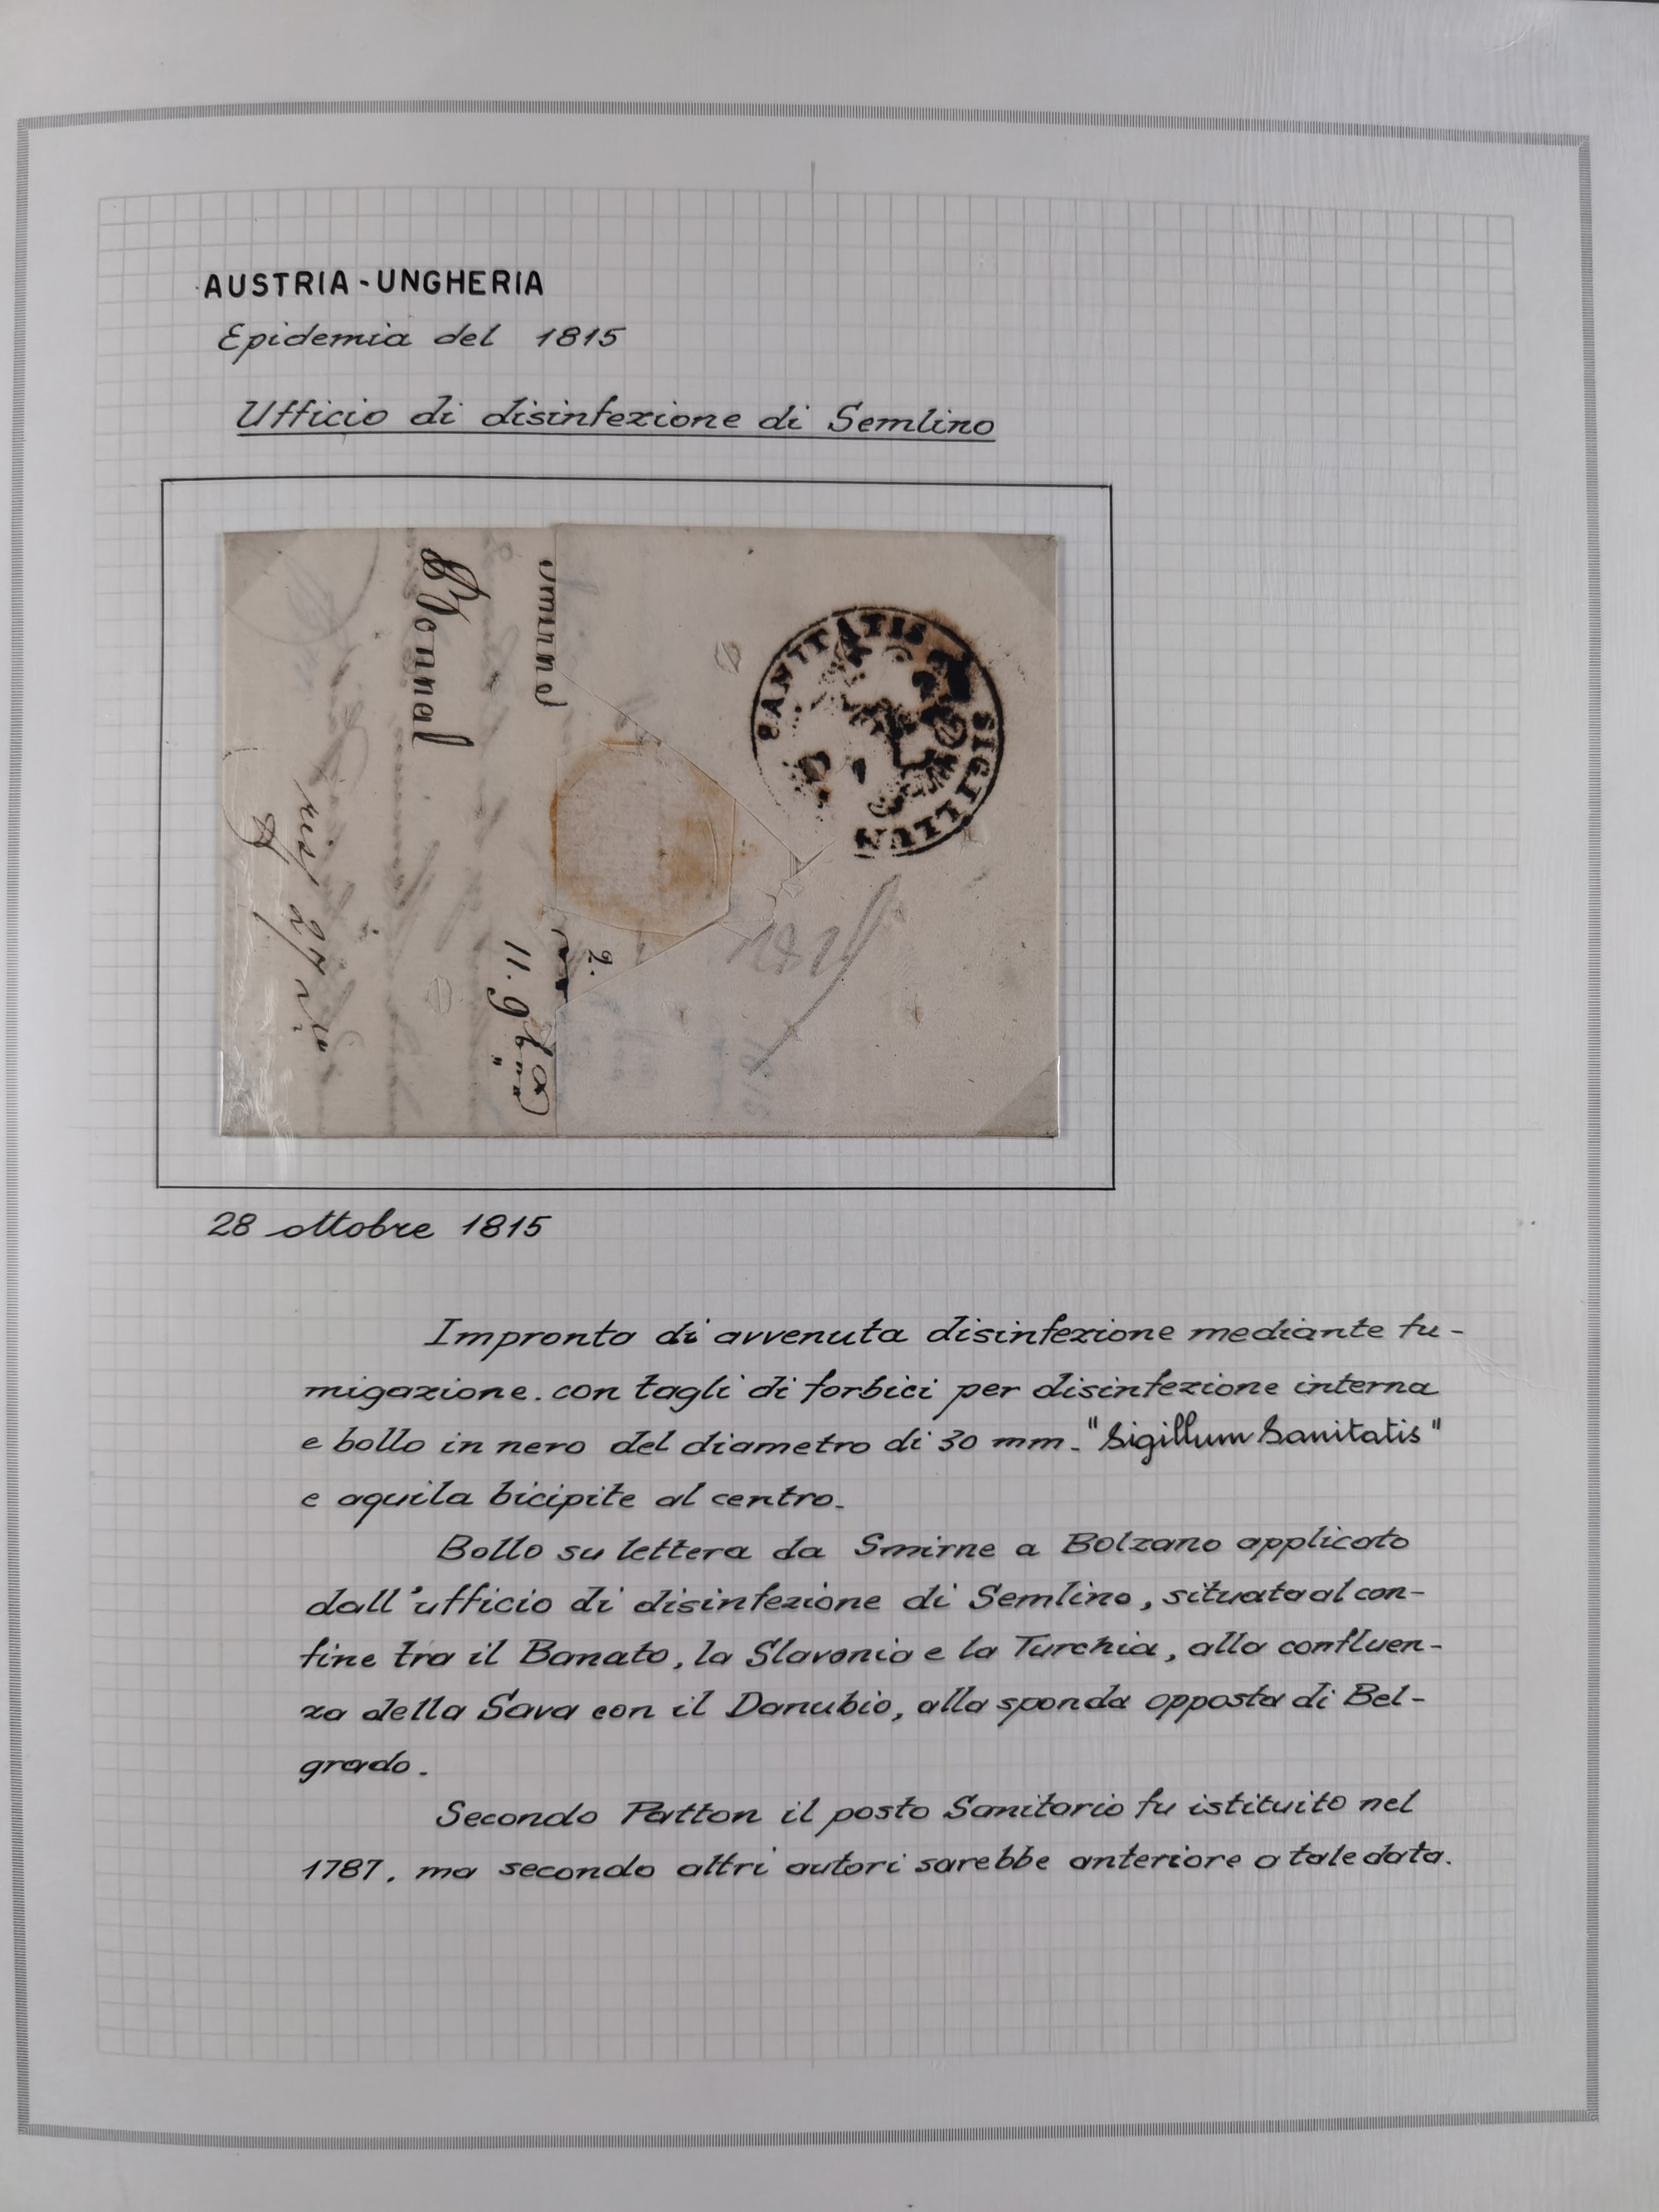 AUSTRIA-UNGHERIA
Epidemia del 1815
Ufficio di disinfezione di Semlino
SIGILLUM SANITATIS
11. 9b
1815
28 ottobre 1815
Impronta di avvenuta disinfezione mediante fu-
migazione. con tagli di forbici per disinfezione interna
e bollo in nero del diametro di 30 mm. "Sigillum Sanitatis"
e aquila bicipite al centro.
Bollo su lettera da Smirne a Bolzano applicato
dall'ufficio di disinfezione di Semlino, situata al con-
fine tra il Banato, la Slavonia e la Turchia, alla confluen-
za della Sava con il Danubio, alla sponda opposta di Bel-
grado.
Secondo Patton il posto Sanitario fu istituito nel
1787, ma secondo altri autori sarebbe anteriore a tale data.